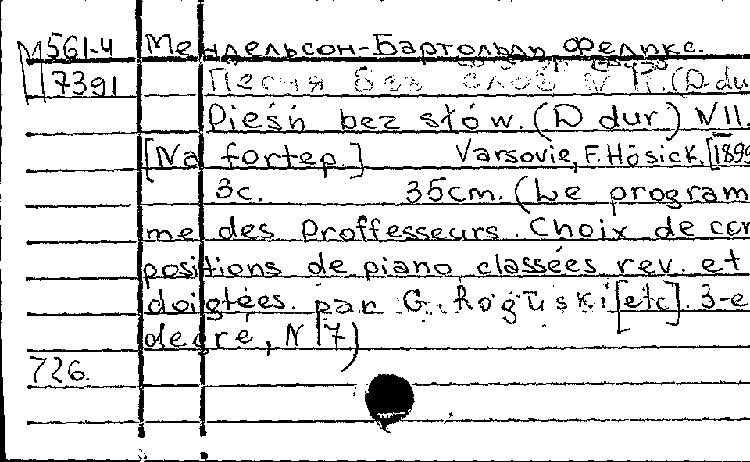 М561-4 Мендельсон-Бартольди, Феликс.
7391 Песня без слов (D du
Pieśń bez słów. (D dur) N11.
[Na fortep.] Varsovie, F. Hösick. [1899
3с. 35cm. (Le program
me des Proffesseurs. Choix de com
positions de piano classées rev. et
doigtées par G. Roguski [etc]. 3-e
degré, N 17)
726.